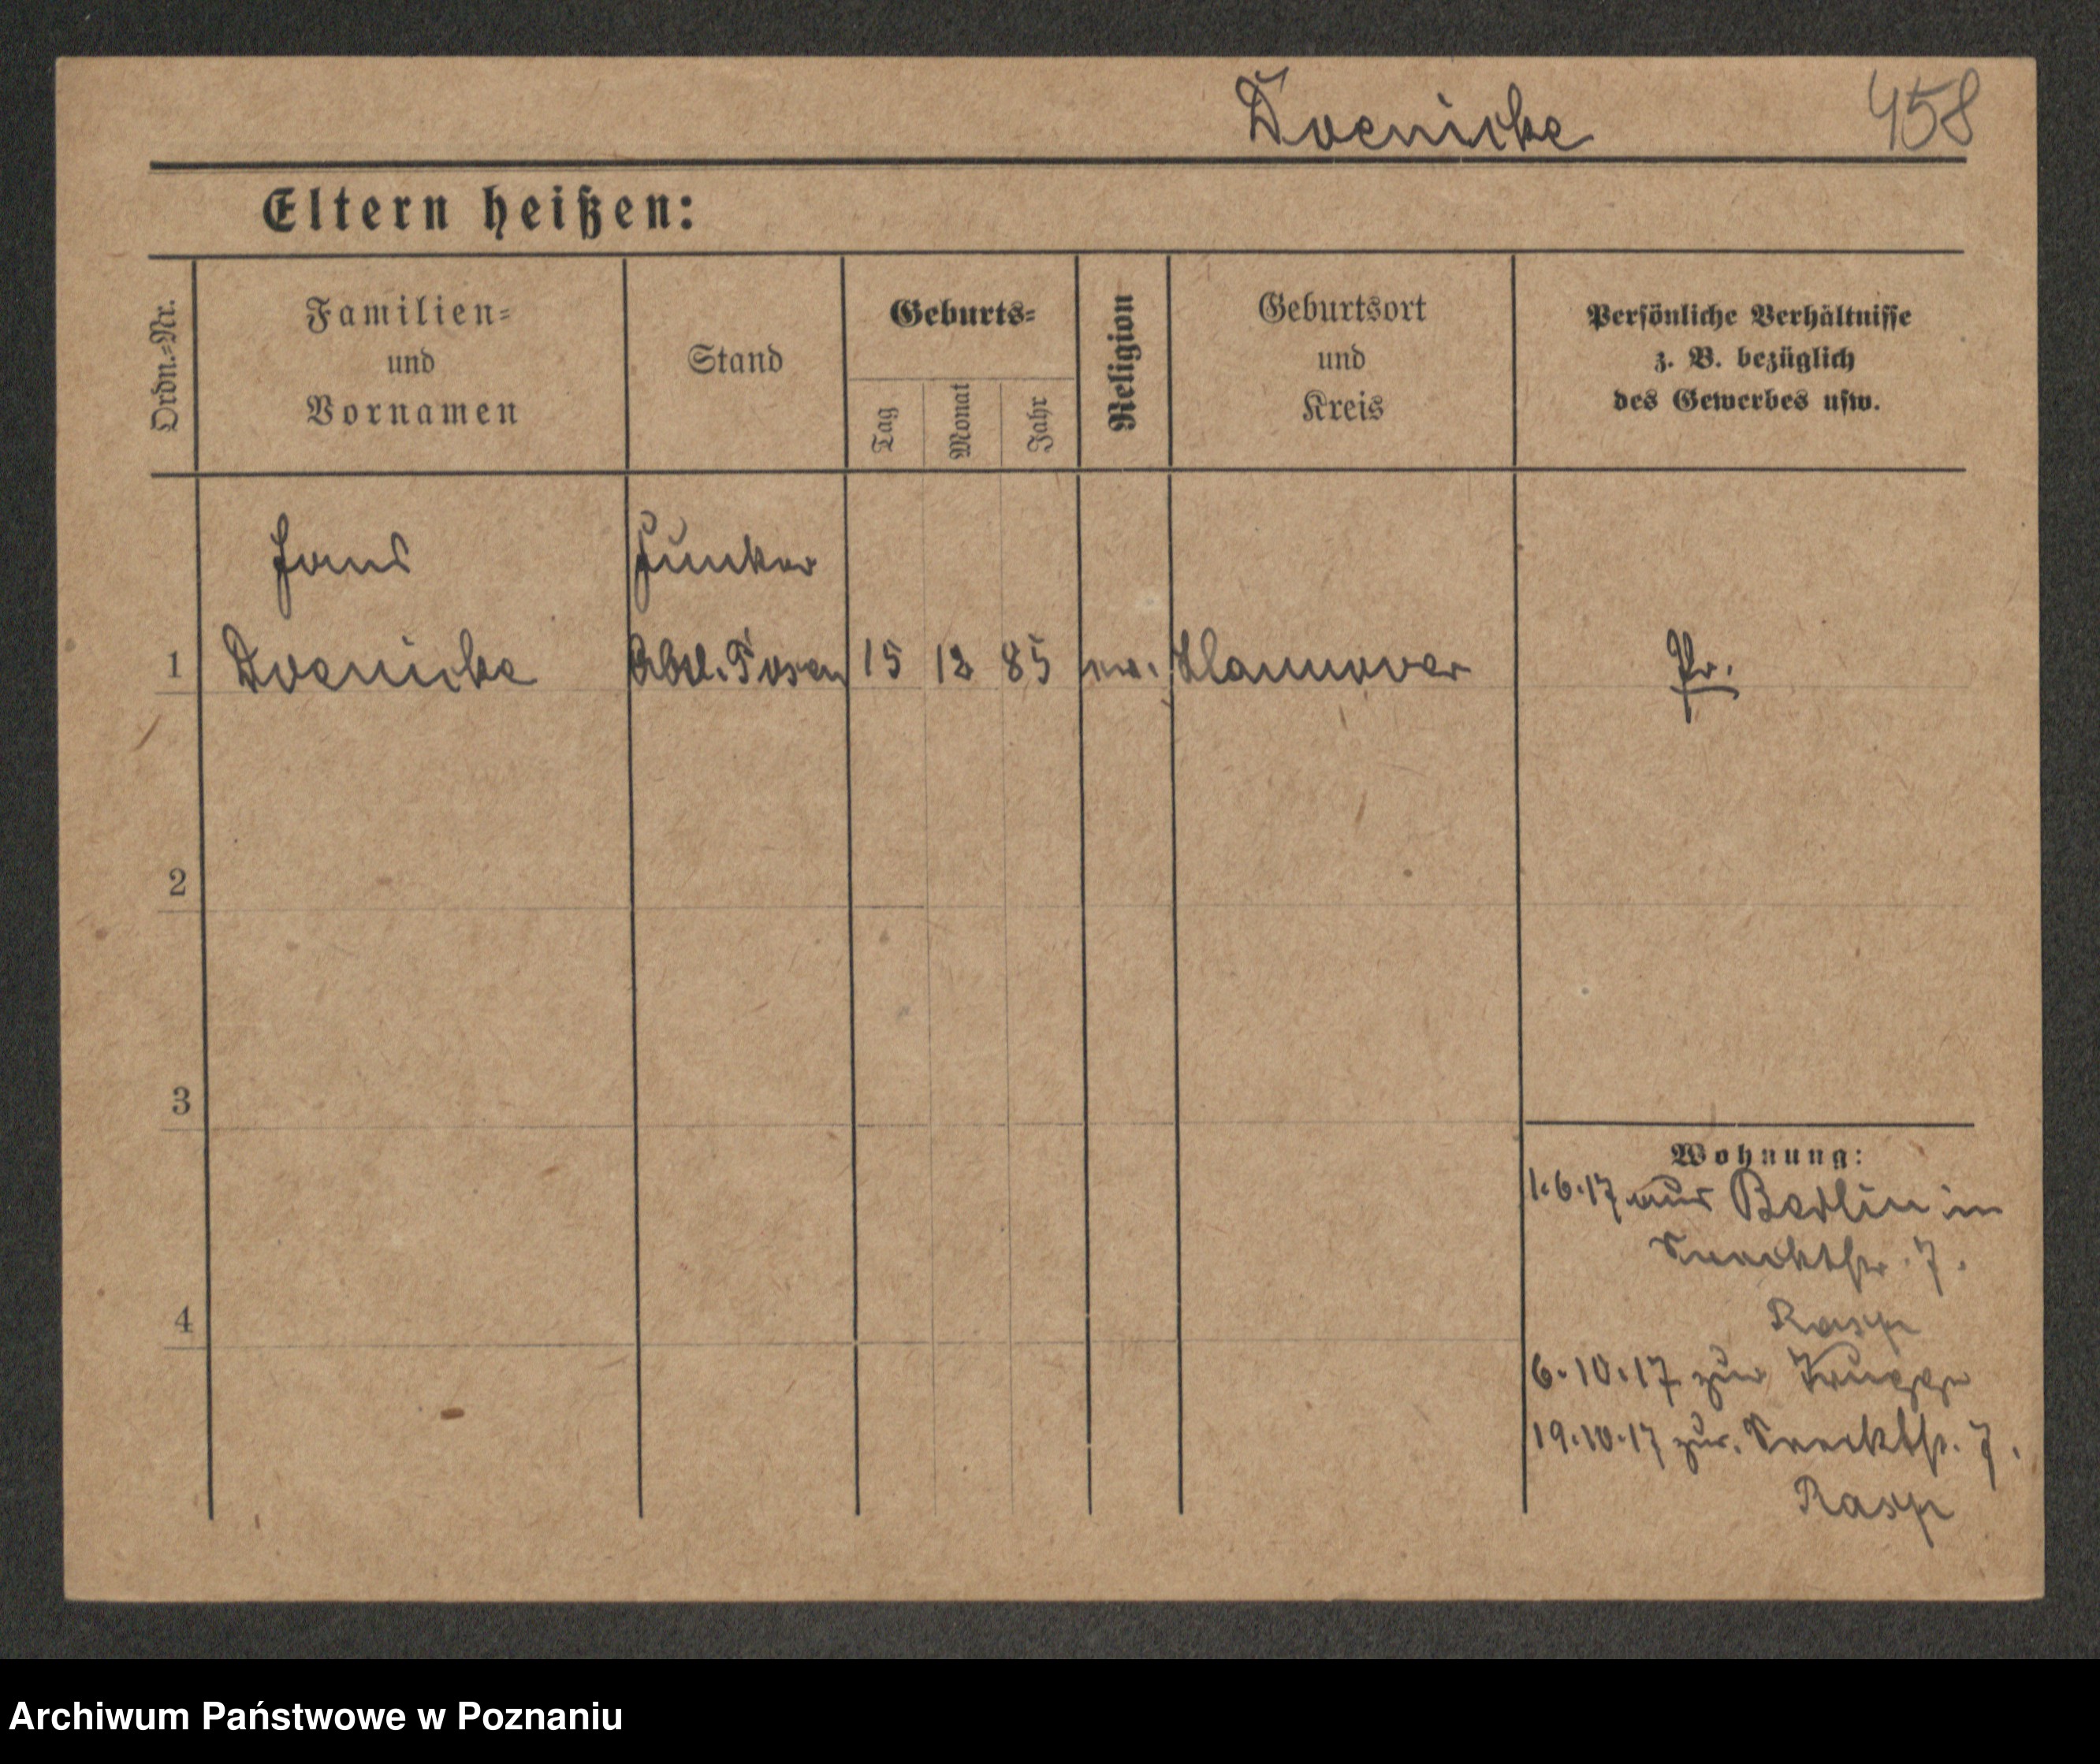 Doenicke 458
Eltern heißen:
Ordn.=Nr.
Familien=
und
Vornamen
Stand
Geburts=
Tag
Monat
Jahr
Religion
Geburtsort
und
Kreis
Persönliche Verhältnisse
z. B. bezüglich
des Gewerbes usw.
Hans Funker
1 Doenicke Abtl. Posen 15 12 85 ev. Hannover Pr.
2
3
4
Wohnung:
1.6.17 aus Berlin in
7.
Rasp
6.10.17 zur Truppe
19.10.17 zur. 7.
Rasp
Archiwum Państwowe w Poznaniu